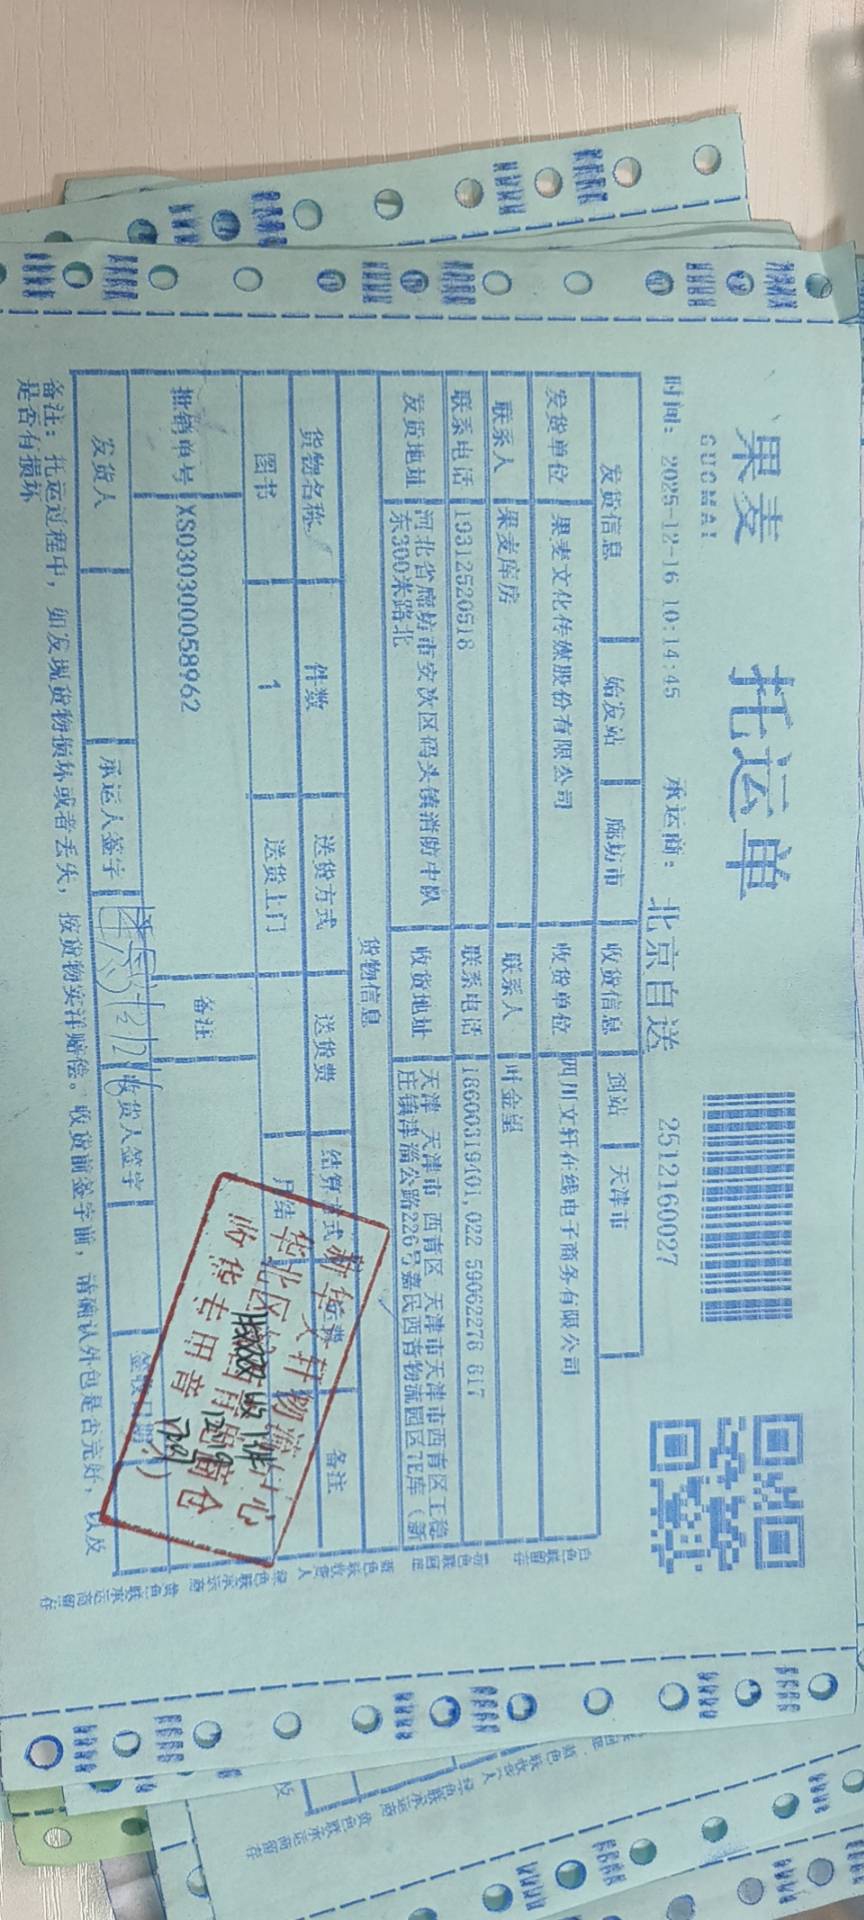 果麦
GUOMAI
托运单
2512160027
时间: 2025-12-16 10:14:45 承运商: 北京自送
发货信息 始发站 廊坊市 收货信息 到站 天津市
发货单位 果麦文化传媒股份有限公司 收货单位 四川文轩在线电子商务有限公司
联系人 果麦库房 联系人 叶金望
联系电话 19312520518 联系电话 18600319401,022 59062278 617
发货地址 河北省廊坊市安次区码头镇消防中队
东300米路北
收货地址 天津 天津市 西青区 天津市天津市西青区王稳
庄镇津淄公路226号嘉民西青物流园区7E库（新
货物信息
货物名称 件数 送货方式 送货费 结算方式 运费 备注
图书 1 送货上门 月结
批销单号 XS030300058962 备注
发货人 承运人签字 收货人签字 签收日期
备注: 托运过程中, 如发现货物损坏或者丢失, 按货物实洋赔偿。收货前签字前, 请确认外包是否完好, 以及
是否有损坏
新华文轩物流中心
收货专用章
白色联留存
蓝色联收货人
绿色联承运商
黄色联承运商留存